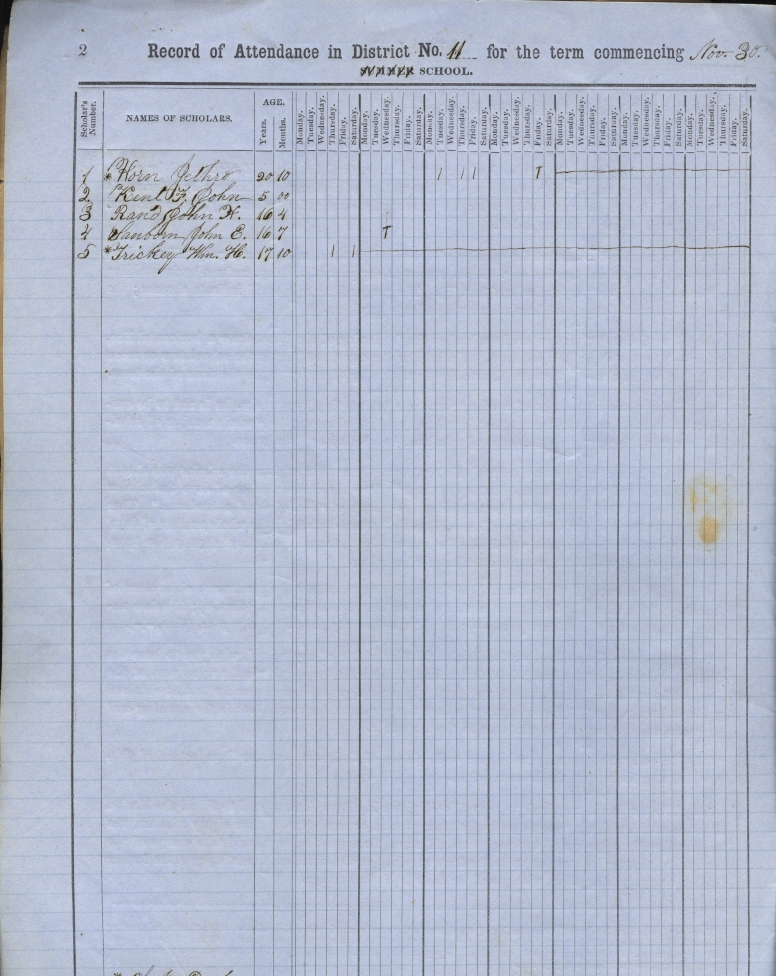 2 Record of Attendance in District No. 11 for the term commencing Nov. 30.
SCHOOL.
Scholar's Number. NAMES OF SCHOLARS. AGE. Years. Months. Monday. Tuesday. Wednesday. Thursday. Friday. Saturday. Monday. Tuesday. Wednesday. Thursday. Friday. Saturday. Monday. Tuesday. Wednesday. Thursday. Friday. Saturday. Monday. Tuesday. Wednesday. Thursday. Friday. Saturday. Monday. Tuesday. Wednesday. Thursday. Friday. Saturday. Monday. Tuesday. Wednesday. Thursday. Friday. Saturday. Monday. Tuesday. Wednesday. Thursday. Friday. Saturday.
1 * Horn Jethro 20 10 1 1 1 T
2 Kent F. John 5 00
3 Rand John H. 16 4
4 Sanborn John E. 16 7 T
5 * Trickey Wm. H. 17 10 1 1